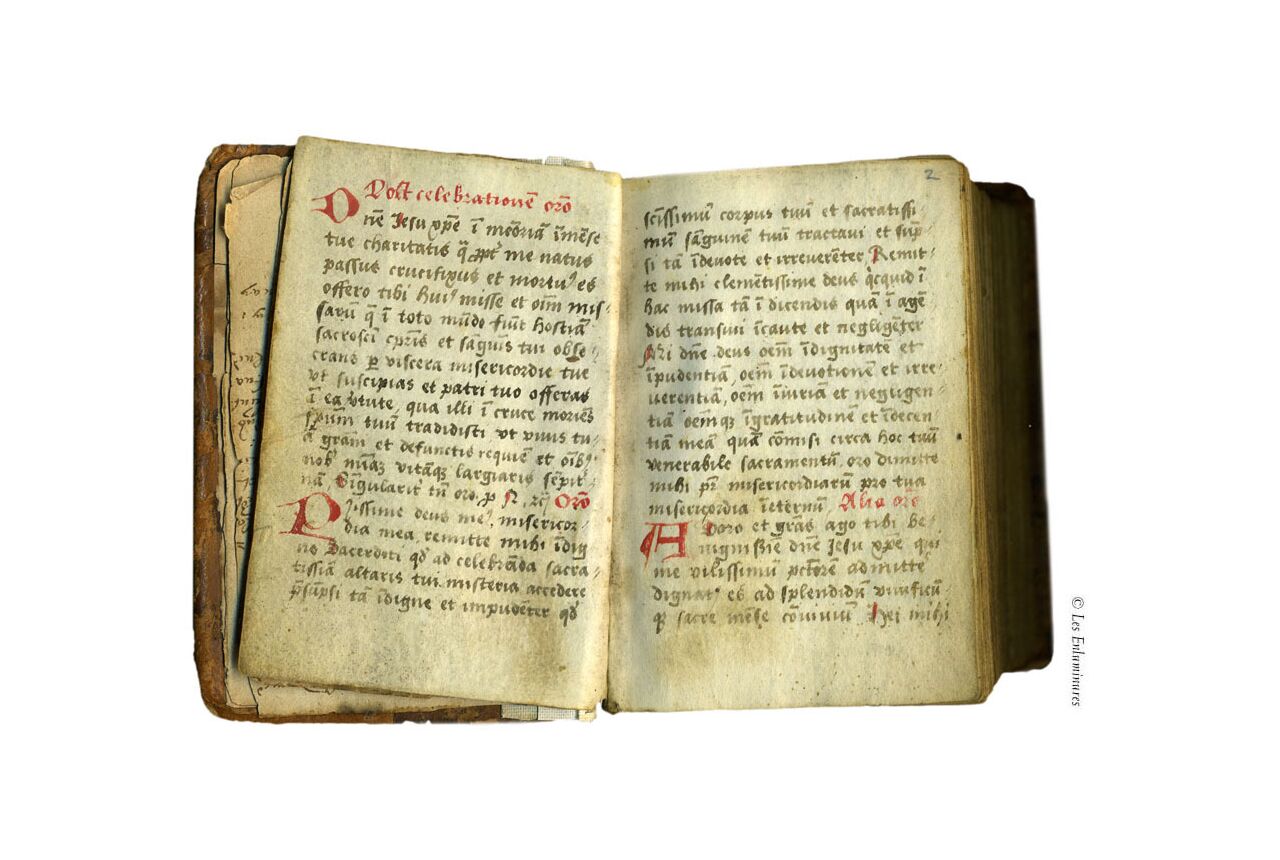 Post celebrationē orō
Dnē Jesu xp̄e ī meōriā īmēse
tue charitatis q̄ ꝓpt̄ me natus
passus crucifixus et mortuꝰ es
offero tibi huiꝰ misse et oīm mis-
sarū q̄ ī toto mūdo fiūt hostiā
sacrosc̄i cp̄ris et sāguīs tui obse-
crans ꝑ viscera misericordie tue
vt suscipias et patri tuo offeras
ī ea v̄tute, qua illi ī cruce moriēs
sp̄um tuū tradidisti vt viuis tu-
ā grām et defunctis requiē et oībꝰ
nobꝰ vitāꝗ largiaris sēpit̄-
nā Sigularit̄ tn̄ oro, ꝑ N, rc̄ Orō
Piissime deus meꝰ, misericor-
dia mea, remitte mihi īdig
no Sacerdoti qd̄ ad celebrāda sacra-
tissīa altaris tui misteria accedere
p̄sūpsi tā īdigne et impudēter qd̄
2
sc̄issimū corpus tuū et sacratissi-
mū sāguinē tuū tractaui et sup̄-
si tā īdevote et irreverēter, Remit-
te mihi clemētissime deus qicquid ī
hac missa tā ī dicendis quā ī agē-
dis transiui īcaute et negligēter
Mi dn̄e deus oem̄ īdignitatē et
īpudentiā, oem̄ īdevotionē et irre-
uerentiā, oem̄ īiuriā et negligen-
tiā oem̄ꝗ īgratitudinē et īdecen-
tiā meā quā cōmisi circa hoc tuū
venerabile sacramentū, oro dimitte
mihi pr̄ misericordiarū pro tua
misericordia īeternū, Alia orō
Adoro et grās ago tibi be-
nignissīe dn̄e Jesu xp̄e qui
me vilissimū pctōrē admitte
dignatꝰ es ad splendidū viuificū
ꝗ sacre mēse cōuiuiū, Hei mihi
© Les Enluminures